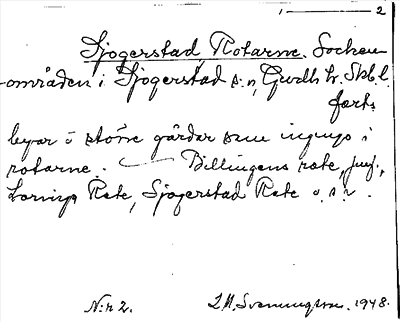 1 — 2
Sjogerstad, Rotarne. Socken
-områden i Sjogerstad s:n, Gudh. hr. Skb. l.
forts.
byar o större gårdar som ingingo i
rotarne. — Billingens rote, jmf.,
Rote, Sjogerstad Rote o.s.v.
N:r 2. L.M. Svenningsson. 1948.